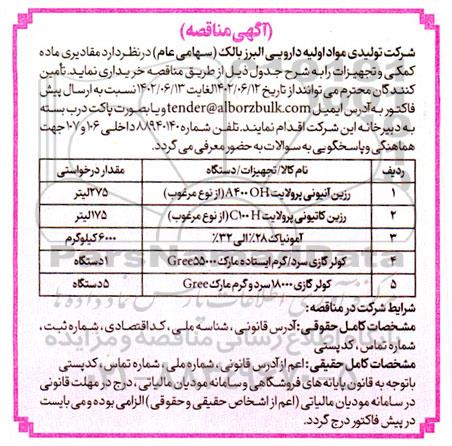 (آگهی مناقصه)
شرکت تولیدی مواد اولیه دارویی البرز بالک (سهامی عام) در نظر دارد مقادیری ماده
کمکی و تجهیزات را به شرح جدول ذیل از طریق مناقصه خریداری نماید. تأمین
کنندگان محترم می توانند از تاریخ ۱۴۰۲/۰۶/۱۲ لغایت ۱۴۰۲/۰۶/۱۳ نسبت به ارسال پیش
فاکتور به آدرس ایمیل tender@alborzbulk.com و یا بصورت پاکت درب بسته
به دبیرخانه این شرکت اقدام نمایند. تلفن شماره ۸۸۹۴۰۱۴۰ داخلی ۱۰۶ و ۱۰۷ جهت
هماهنگی و پاسخگویی به سوالات به حضور معرفی می گردد.
ردیف نام کالا/تجهیزات/دستگاه مقدار درخواستی
۱ رزین آنیونی پرولایت A۴۰۰ OH (از نوع مرغوب) ۲۷۵ لیتر
۲ رزین کاتیونی پرولایت C۱۰۰ H (از نوع مرغوب) ۱۷۵ لیتر
۳ آمونیاک ۲۸٪ الی ۳۲٪ ۶۰۰۰ کیلوگرم
۴ کولر گازی سرد/گرم ایستاده مارک Gree۵۵۰۰۰ ۱ دستگاه
۵ کولر گازی ۱۸۰۰۰ سرد و گرم مارک Gree ۵ دستگاه
شرایط شرکت در مناقصه:
مشخصات کامل حقوقی: آدرس قانونی، شناسه ملی، کد اقتصادی، شماره ثبت،
شماره تماس، کدپستی
مشخصات کامل حقیقی: اعم از آدرس قانونی، شماره ملی، شماره تماس، کدپستی
با توجه به قانون پایانه های فروشگاهی و سامانه مودیان مالیاتی، درج در مهلت قانونی
در سامانه مودیان مالیاتی (اعم از اشخاص حقیقی و حقوقی) الزامی بوده و می بایست
در پیش فاکتور درج گردد.